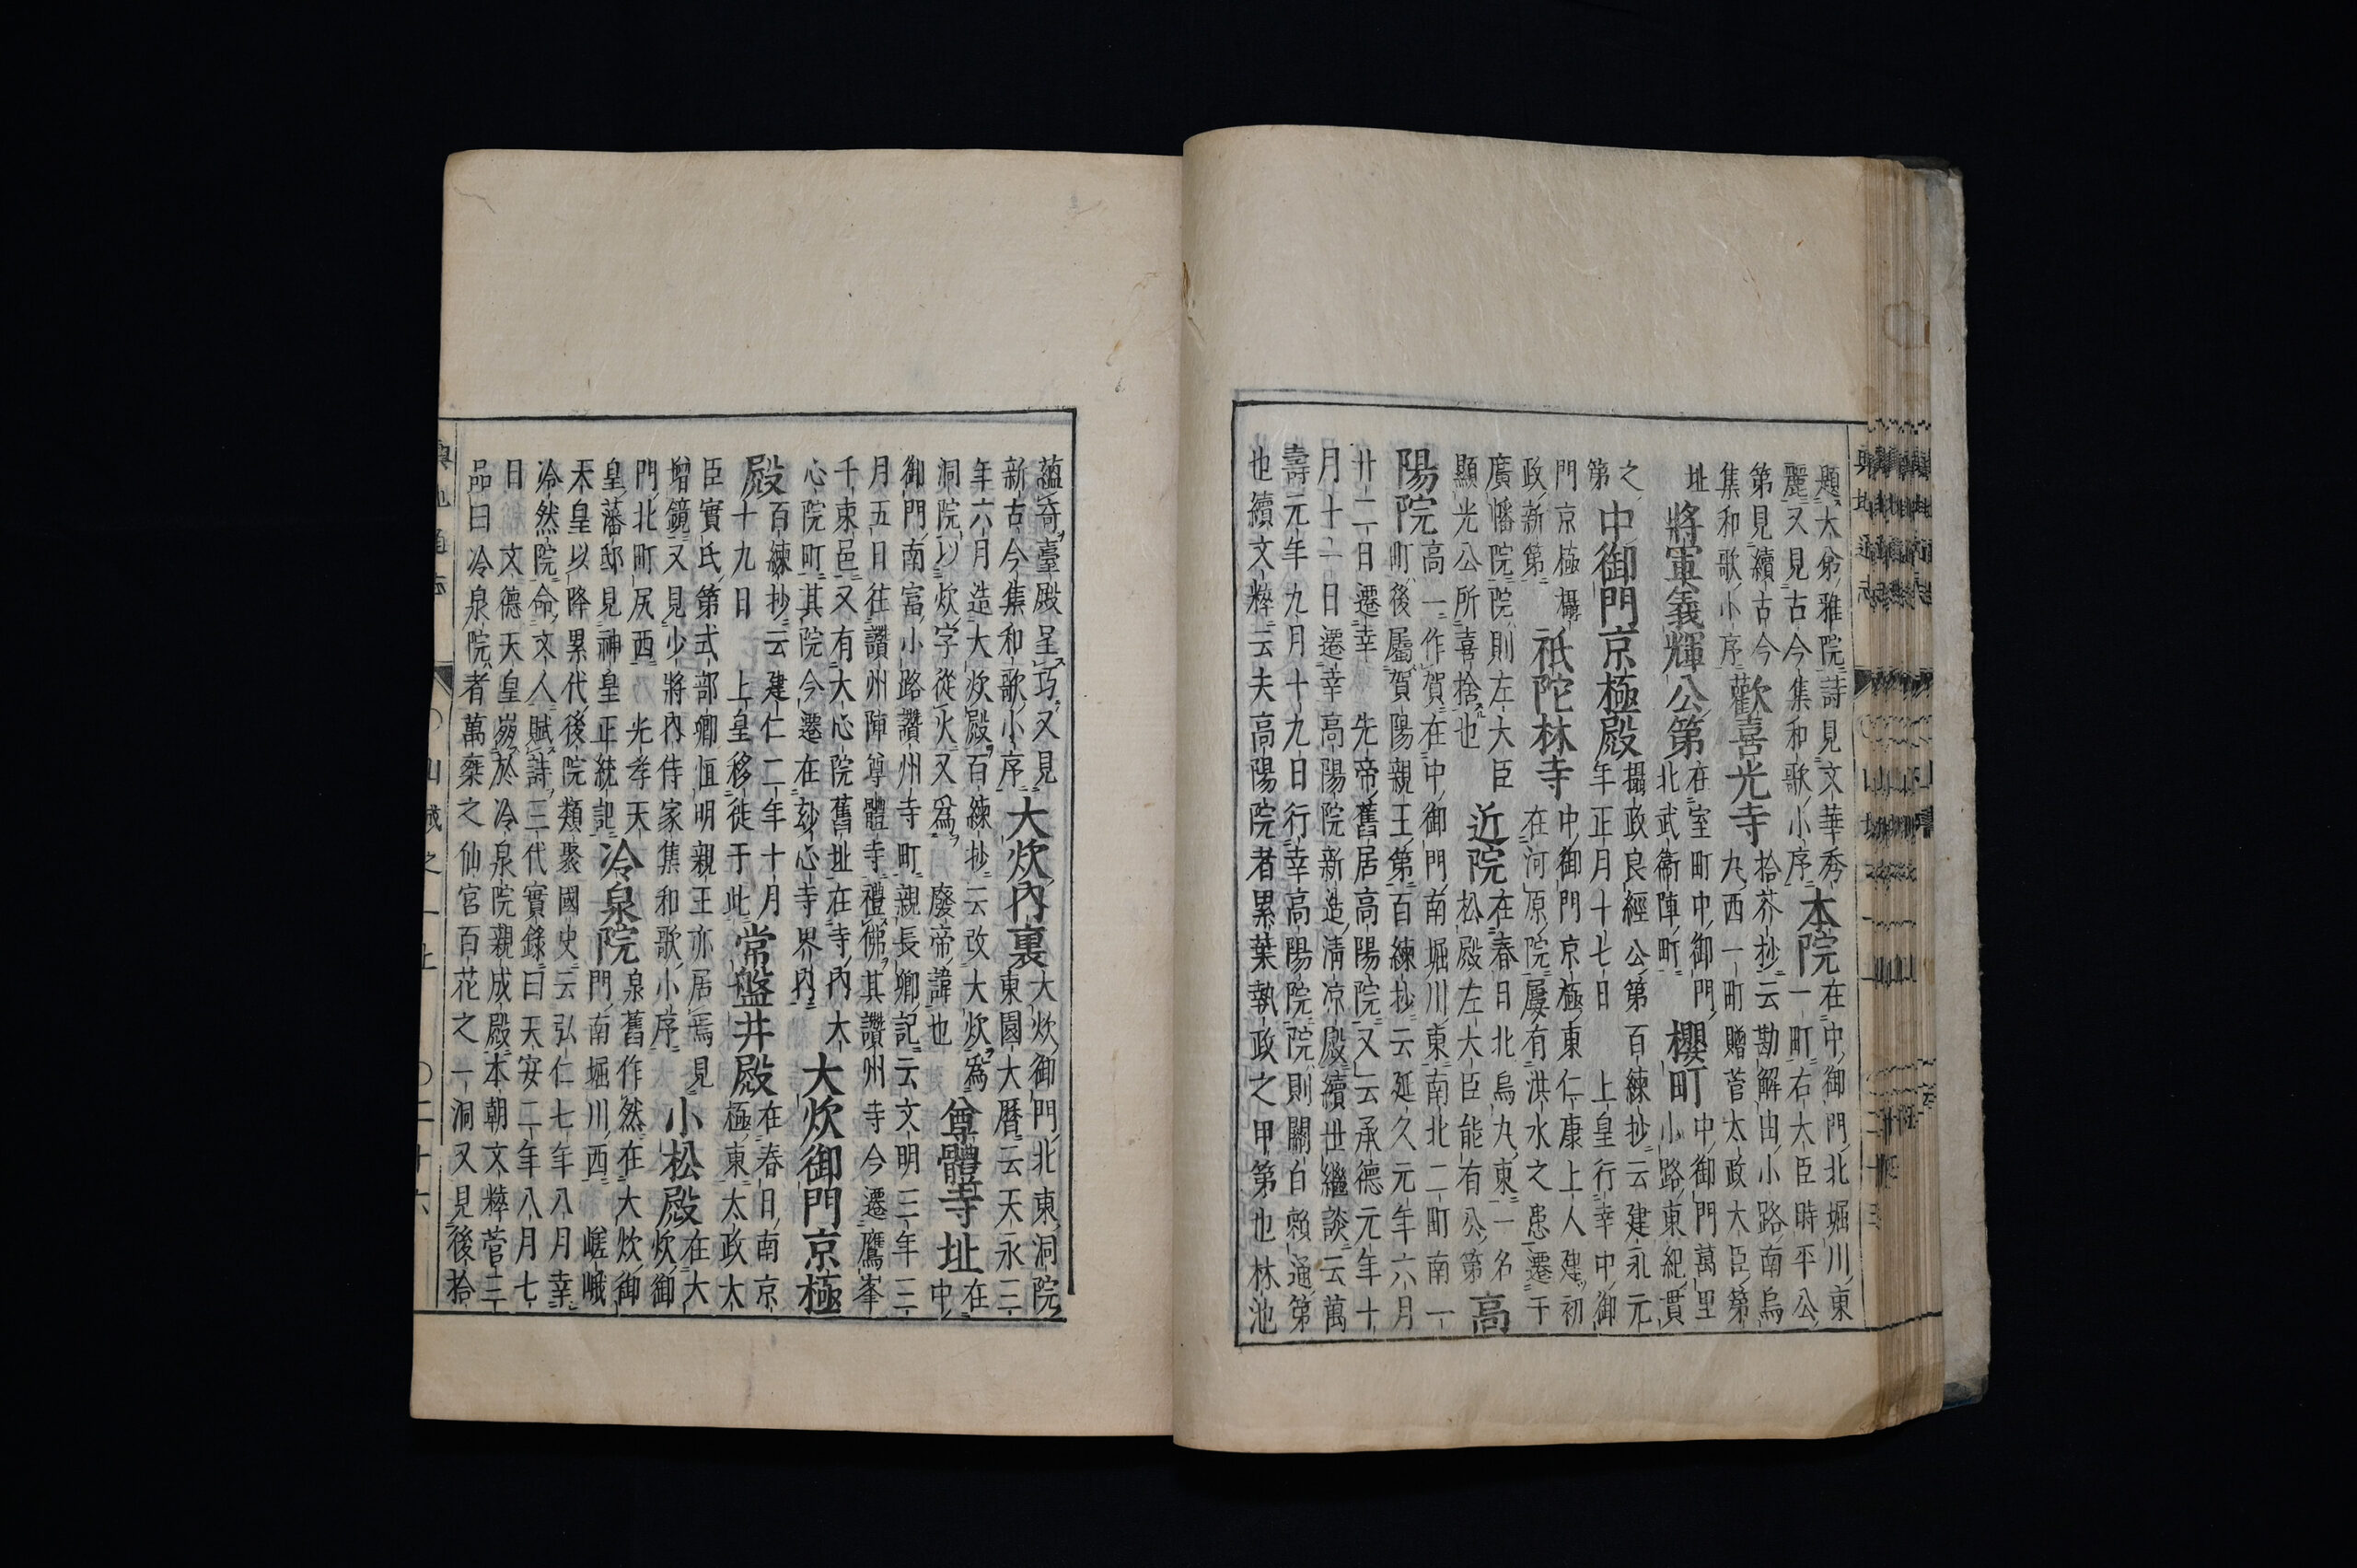 題太弟雅院詩見文華秀
麗又見古今集和歌小序
本院
在中御門北堀川東
一町右大臣時平公
第見續古今
集和歌小序
歡喜光寺
拾芥抄云勘解由小路南烏
丸西一町贈菅太政大臣第
址
將軍義輝公第
在室町中御門
北武衛陣町
櫻町
中御門萬里
小路東紀貫
之
第
中御門京極殿
攝政良經公第 百練抄云建永元
年正月十七日 上皇行幸中御
門京極攝
政新第
祇陀林寺
中御門京極東仁康上人建初
在河原院屢有洪水之患遷于
廣幡院院則左大臣
顯光公所喜捨也
近院
在春日北烏丸東一名
松殿左大臣能有公第
高
陽院
高一作賀在中御門南堀川東南北二町南一
町後屬賀陽親王第百練抄云延久元年六月
廿二日遷幸 先帝舊居高陽院又云承德元年十
月十一日遷幸高陽院新造清凉殿續世繼談云萬
壽元年九月十九日行幸高陽院院則關白賴通第
也續文粹云夫高陽院者累葉執政之甲第也林池
蘊奇臺殿呈巧又見
新古今集和歌小序
大炊內裏
大炊御門北東洞院
東園大曆云天永三
年六月造大炊殿百練抄云改大炊為
洞院以炊字從火又為 廢帝諱也
尊體寺址
在
中
御門南富小路讚州寺町親長卿記云文明三年三
月五日往讚州陣尊體寺禮佛其讚州寺今遷鷹峯
千束邑又有大心院舊址在寺內 大
心院町其院今遷在玅心寺界內
大炊御門京極
殿
百練抄云 建仁二年十月
十九日 上皇移徙于此
常盤井殿
在春日南京
極東太政大
臣實氏第式部卿恒明親王亦居焉見
增鏡又見少將內侍家集和歌小序
小松殿
在大
炊御
門北町尻西 光孝天
皇藩邸見神皇正統記
冷泉院
泉舊作然在大炊御
門南堀川西 嵯峨
天皇以降累代後院類聚國史云弘仁七年八月幸
冷然院命文人賦詩三代實錄曰天安二年八月七
日 文德天皇崩於冷泉院親成殿本朝文粹菅三
品曰冷泉院者萬葉之仙宮百花之一洞又見後拾